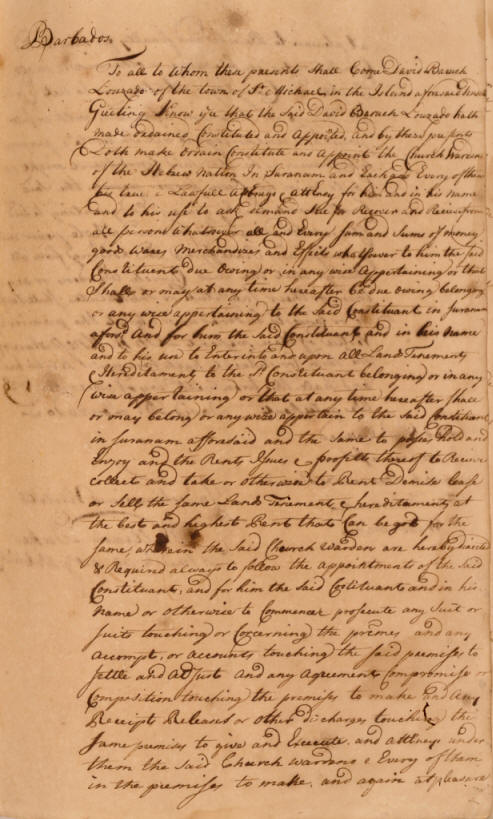 Barbados.
To all to Whom these presents Shall Come David Baruch
Louzado of the town of St. Michael in the Island aforesaid
Greeting Know yee that the Said David Baruch Louzado hath
made ordained Constituted and Appointed, and by these presents
Doth make Ordain Constitute and Appoint the Church Wardens
of the Hebrew Nation In Suranam and Each & Every of them
true & Lawfull Attorney for him and in his name
and to his use to ask demand Sue for Recover and Receive from
all persons Whatsoever all and Every Sum and Sums of money
goods Wares Merchandizes and Effects whatsoever to him the said
Constituent due Owing or in any wise Appertaining or that
Shall or may at any time hereafter be due owing belonging
or any wise appertaining to the Said Constituant in Suranam
afores.d And for him the Said Constituent and in his Name
and to his use to Enter into and upon all Lands Tenements
Hereditaments to the Sd. Constituant belonging or in any
wise appertaining or that at any time hereafter shall
or may belong or any wise appertain to the Said Constituent
in Suranam afforsaid and the Same to posses hold and
Enjoy and the Rents Issues & profitts thereof to Receive
collect and take or otherwise to Rent Demise lease
or Sell the Same Lands Tenements & hereditaments at
the best and highest Rent that Can be gott for the
Same, wherein the Said Church Warden are hereby directed
& Required always to follow the appointments of the Said
Constituant, and for him the said Costituant and in his
Name or otherwise to Commence prosecute any Suit or
Suits touching or Cocerning the prêmes and any
Accompt, or Accounts touching the said premises to
Settle and Adjust And any Agreement Compromise or
Composition touching the premises to make And Any
Receipt Releases or other discharges touching the
Same premises to give and Execute and Attorneys under
them the Said Church wardens & Every of them
in the premises to make, and again at pleasure